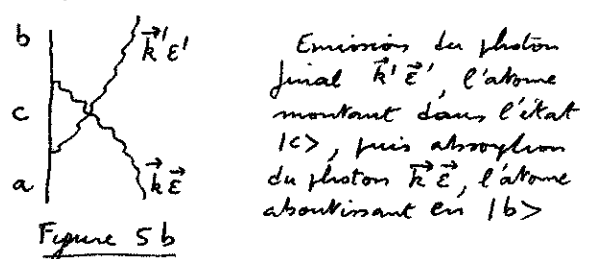 b
k⃗'ε⃗'
c
a
k⃗ε⃗
Figure 5b
Emission du photon
final k⃗' ε⃗', l'atome
montant dans l'état
|c>, puis absorption
du photon k⃗ ε⃗, l'atome
aboutissant en |b>